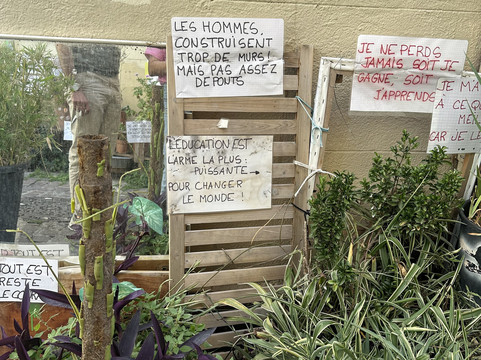 LES HOMMES,
CONSTRUISENT
TROP DE MURS!
MAIS PAS ASSEZ
DE PONTS
L'EDUCATION EST
L'ARME LA PLUS :
PUISSANTE →
POUR CHANGER
LE MONDE !
JE NE PERDS
JAMAIS SOIT JE
GAGNE, SOIT
J'APPRENDS
JE M'A
À CE Q
ME
CAR JE L
TOUT EST
RESTE
LE COR